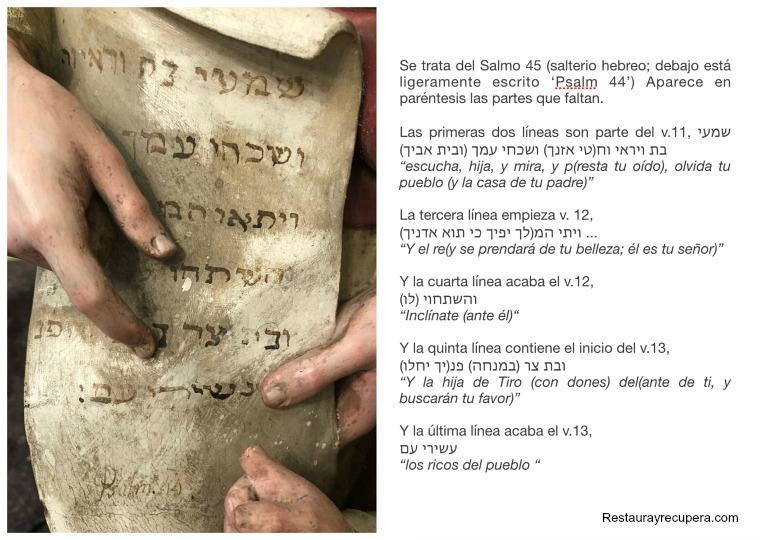 שמעי בת וראיו
ושכחו עמך
ויתאי המ
והשתחו
ובת צר פנ
עשירי עם:
Psalm. 44
Se trata del Salmo 45 (salterio hebreo; debajo está
ligeramente escrito ‘Psalm 44’) Aparece en
paréntesis las partes que faltan.
Las primeras dos líneas son parte del v.11, שמעי
בת ויראי וח(טי אזנך) ושכחי עמך (ובית אביך)
“escucha, hija, y mira, y p(resta tu oído), olvida tu
pueblo (y la casa de tu padre)”
La tercera línea empieza v. 12,
ויתי המ(לך יפיך כי תוא אדניך) ...
“Y el re(y se prendará de tu belleza; él es tu señor)”
Y la cuarta línea acaba el v.12,
והשתחוי (לו)
“Inclínate (ante él)“
Y la quinta línea contiene el inicio del v.13,
ובת צר (במנחה) פנ(יך יחלו)
“Y la hija de Tiro (con dones) del(ante de ti, y
buscarán tu favor)”
Y la última línea acaba el v.13,
עשירי עם
“los ricos del pueblo “
Restaurayrecupera.com